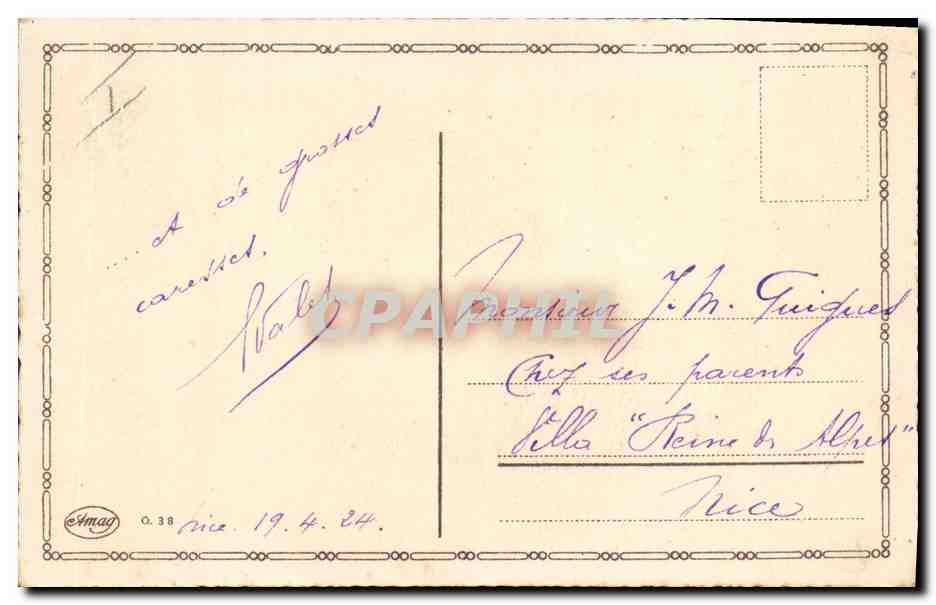 1
.... et de grosses
caresses.
CPARHIL
Monsieur J. M. Guigues
Chez ses parents
Villa "Reine des Alpes"
Nice
Amag
O. 38
Nice. 19.4.24.